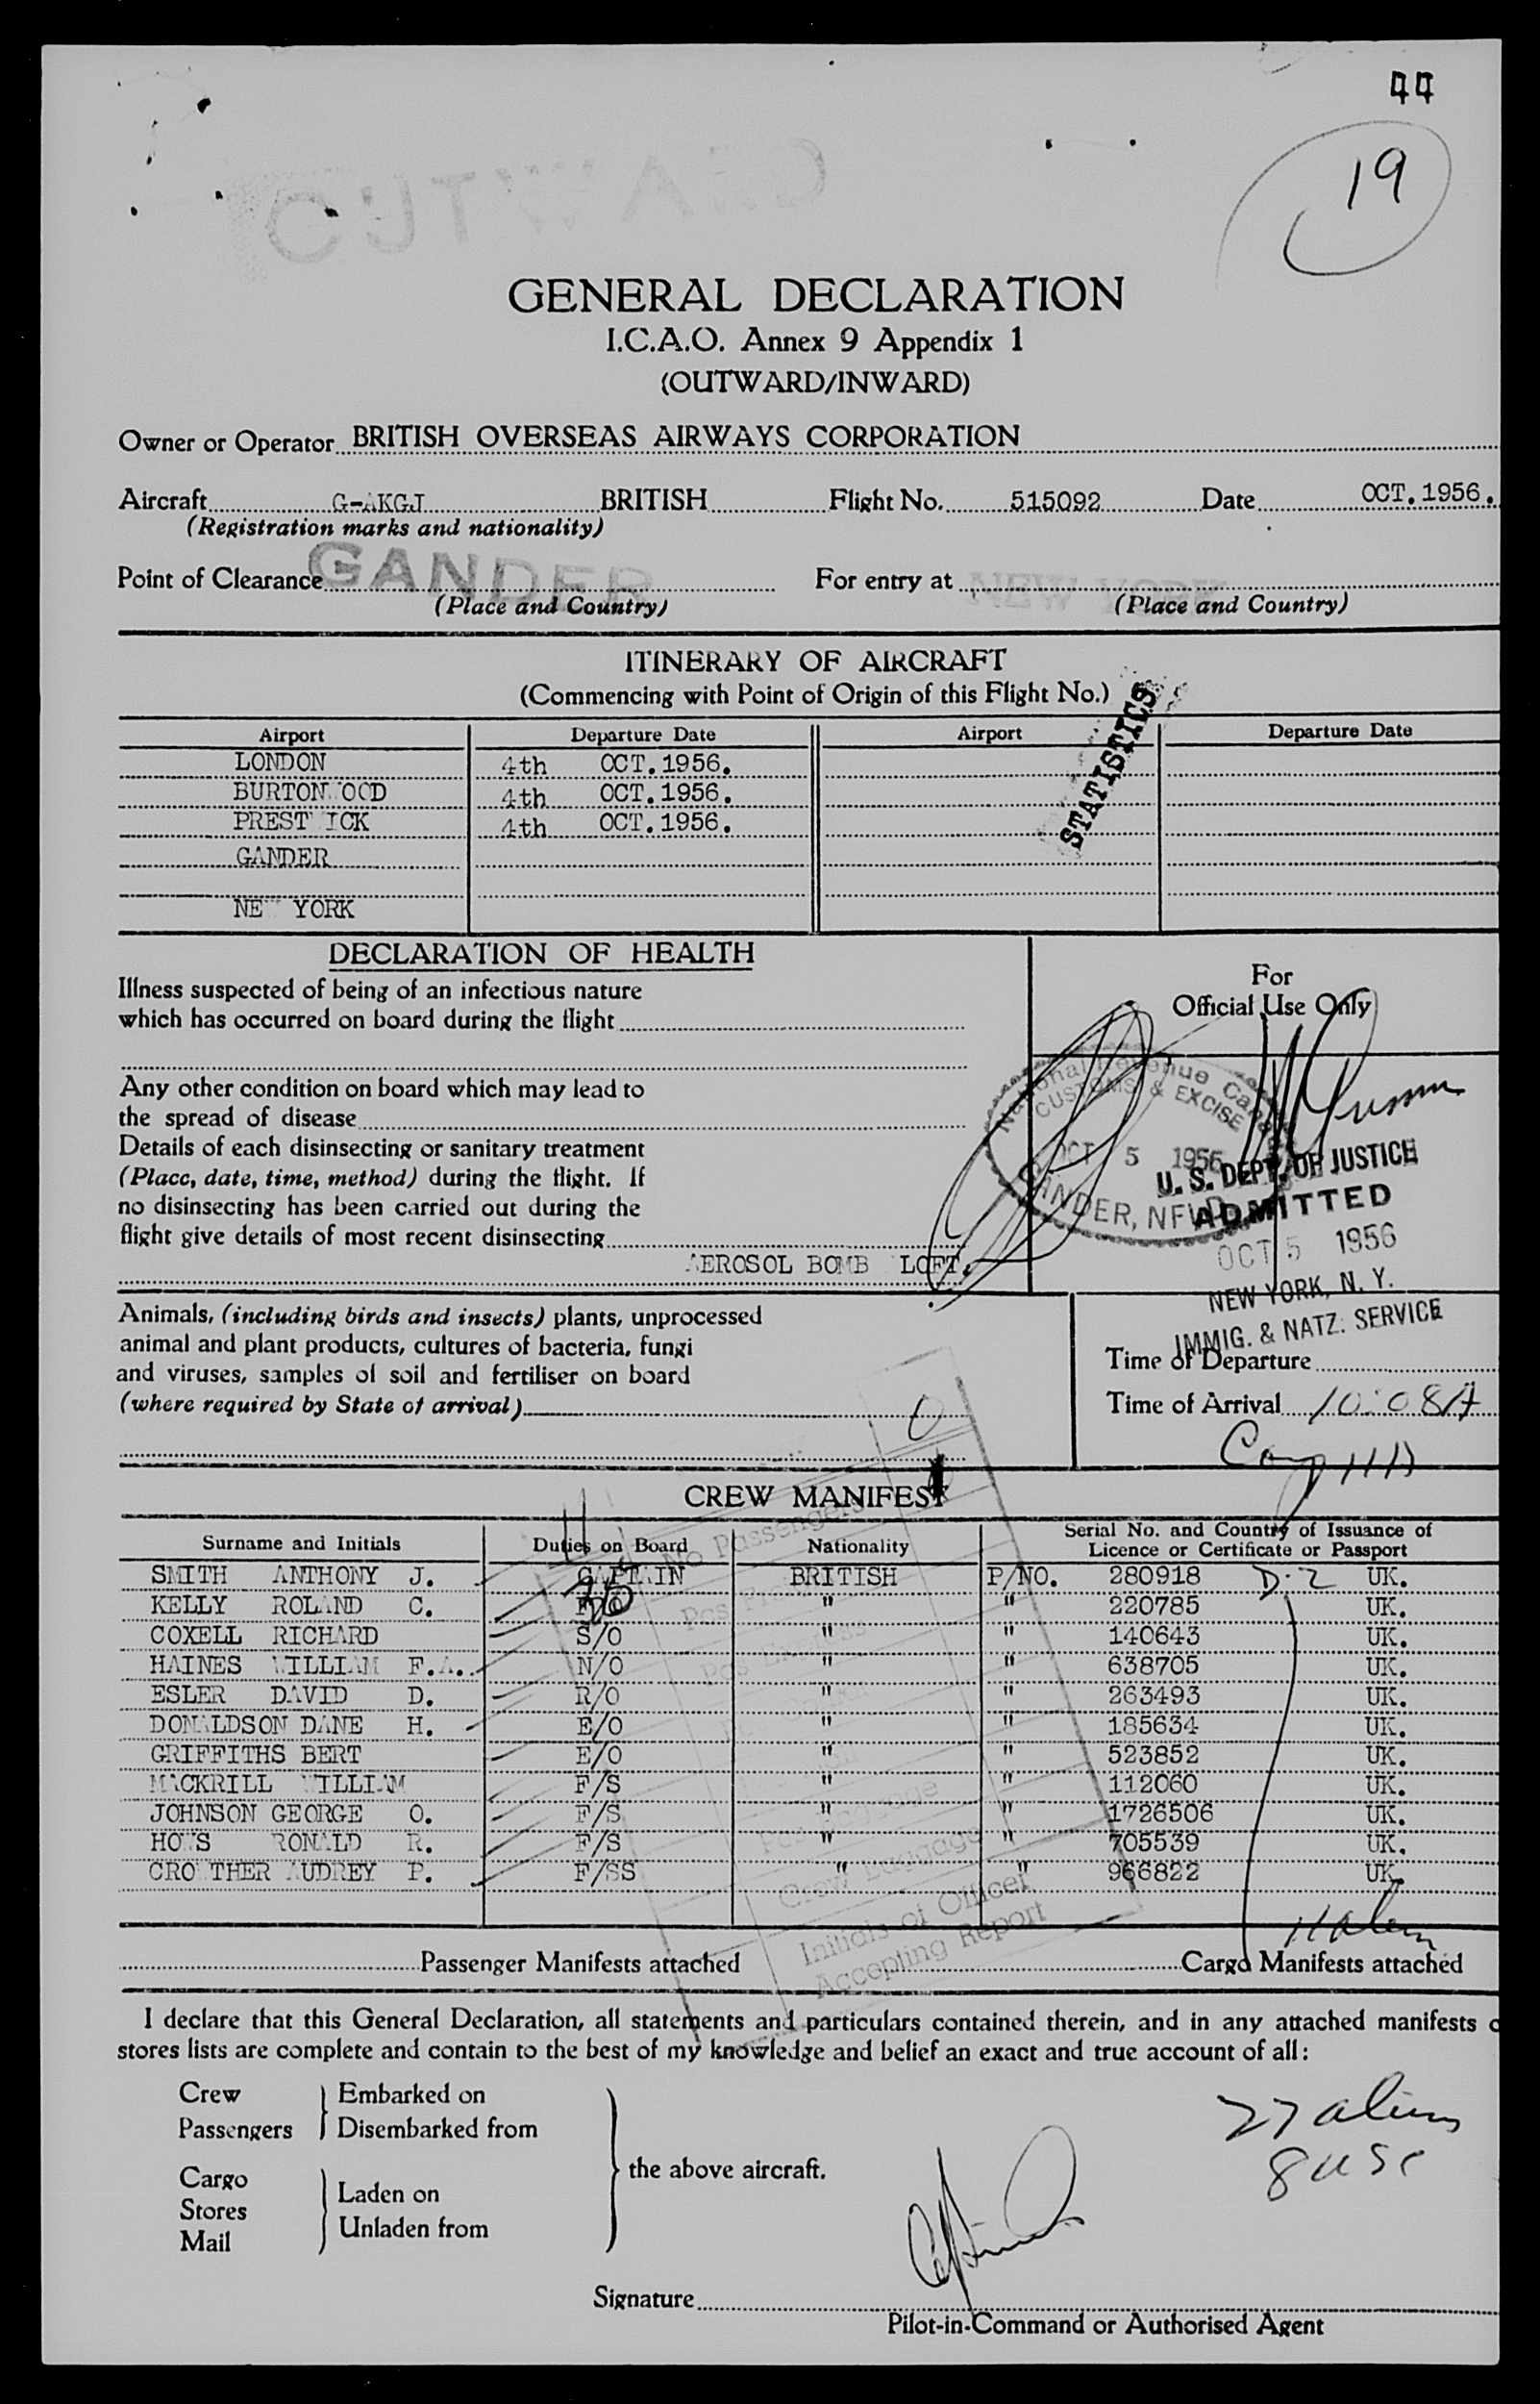 44
19
GENERAL DECLARATION
I.C.A.O. Annex 9 Appendix 1
(OUTWARD/INWARD)
Owner or Operator BRITISH OVERSEAS AIRWAYS CORPORATION
Aircraft G-AKGJ BRITISH Flight No. 515092 Date OCT.1956.
(Registration marks and nationality)
Point of Clearance GANDER For entry at NEW YORK
(Place and Country) (Place and Country)
ITINERARY OF AIRCRAFT
(Commencing with Point of Origin of this Flight No.)
STATISTICS
Airport Departure Date Airport Departure Date
LONDON 4th OCT.1956.
BURTONWOOD 4th OCT.1956.
PRESTWICK 4th OCT.1956.
GANDER
NEW YORK
DECLARATION OF HEALTH
For
Official Use Only
Illness suspected of being of an infectious nature
which has occurred on board during the flight
Any other condition on board which may lead to
the spread of disease
Details of each disinsecting or sanitary treatment
(Place, date, time, method) during the flight. If
no disinsecting has been carried out during the
flight give details of most recent disinsecting
AEROSOL BOMB LOFT.
National Revenue Canada
CUSTOMS & EXCISE
OCT 5 1956
GANDER, NFLD.
U. S. DEPT. OF JUSTICE
ADMITTED
OCT 5 1956
NEW YORK, N. Y.
IMMIG. & NATZ. SERVICE
Animals, (including birds and insects) plants, unprocessed
animal and plant products, cultures of bacteria, fungi
and viruses, samples of soil and fertiliser on board
(where required by State of arrival) 0
Time of Departure
Time of Arrival 10:08A
CREW MANIFEST
Surname and Initials Duties on Board Nationality Serial No. and Country of Issuance of
Licence or Certificate or Passport
SMITH ANTHONY J. CAPTAIN BRITISH P/NO. 280918 D-2 UK.
KELLY ROLAND C. F/O " " 220785 UK.
COXELL RICHARD S/O " " 140643 UK.
HAINES WILLIAM F.A. N/O " " 638705 UK.
ESLER DAVID D. R/O " " 263493 UK.
DONALDSON DANE H. E/O " " 185634 UK.
GRIFFITHS BERT E/O " " 523852 UK.
MACKRILL WILLIAM F/S " " 112060 UK.
JOHNSON GEORGE O. F/S " " 1726506 UK.
HOWS RONALD R. F/S " " 705539 UK.
CROWTHER AUDREY P. F/SS " " 966822 UK.
No Passengers
Crew Baggage
Initials of Officer
Accepting Report
Passenger Manifests attached Cargo Manifests attached
I declare that this General Declaration, all statements and particulars contained therein, and in any attached manifests
stores lists are complete and contain to the best of my knowledge and belief an exact and true account of all:
Crew Embarked on
Passengers Disembarked from
the above aircraft.
Cargo
Stores Laden on
Mail Unladen from
27 aliens
8 USC
Signature
Pilot-in-Command or Authorised Agent